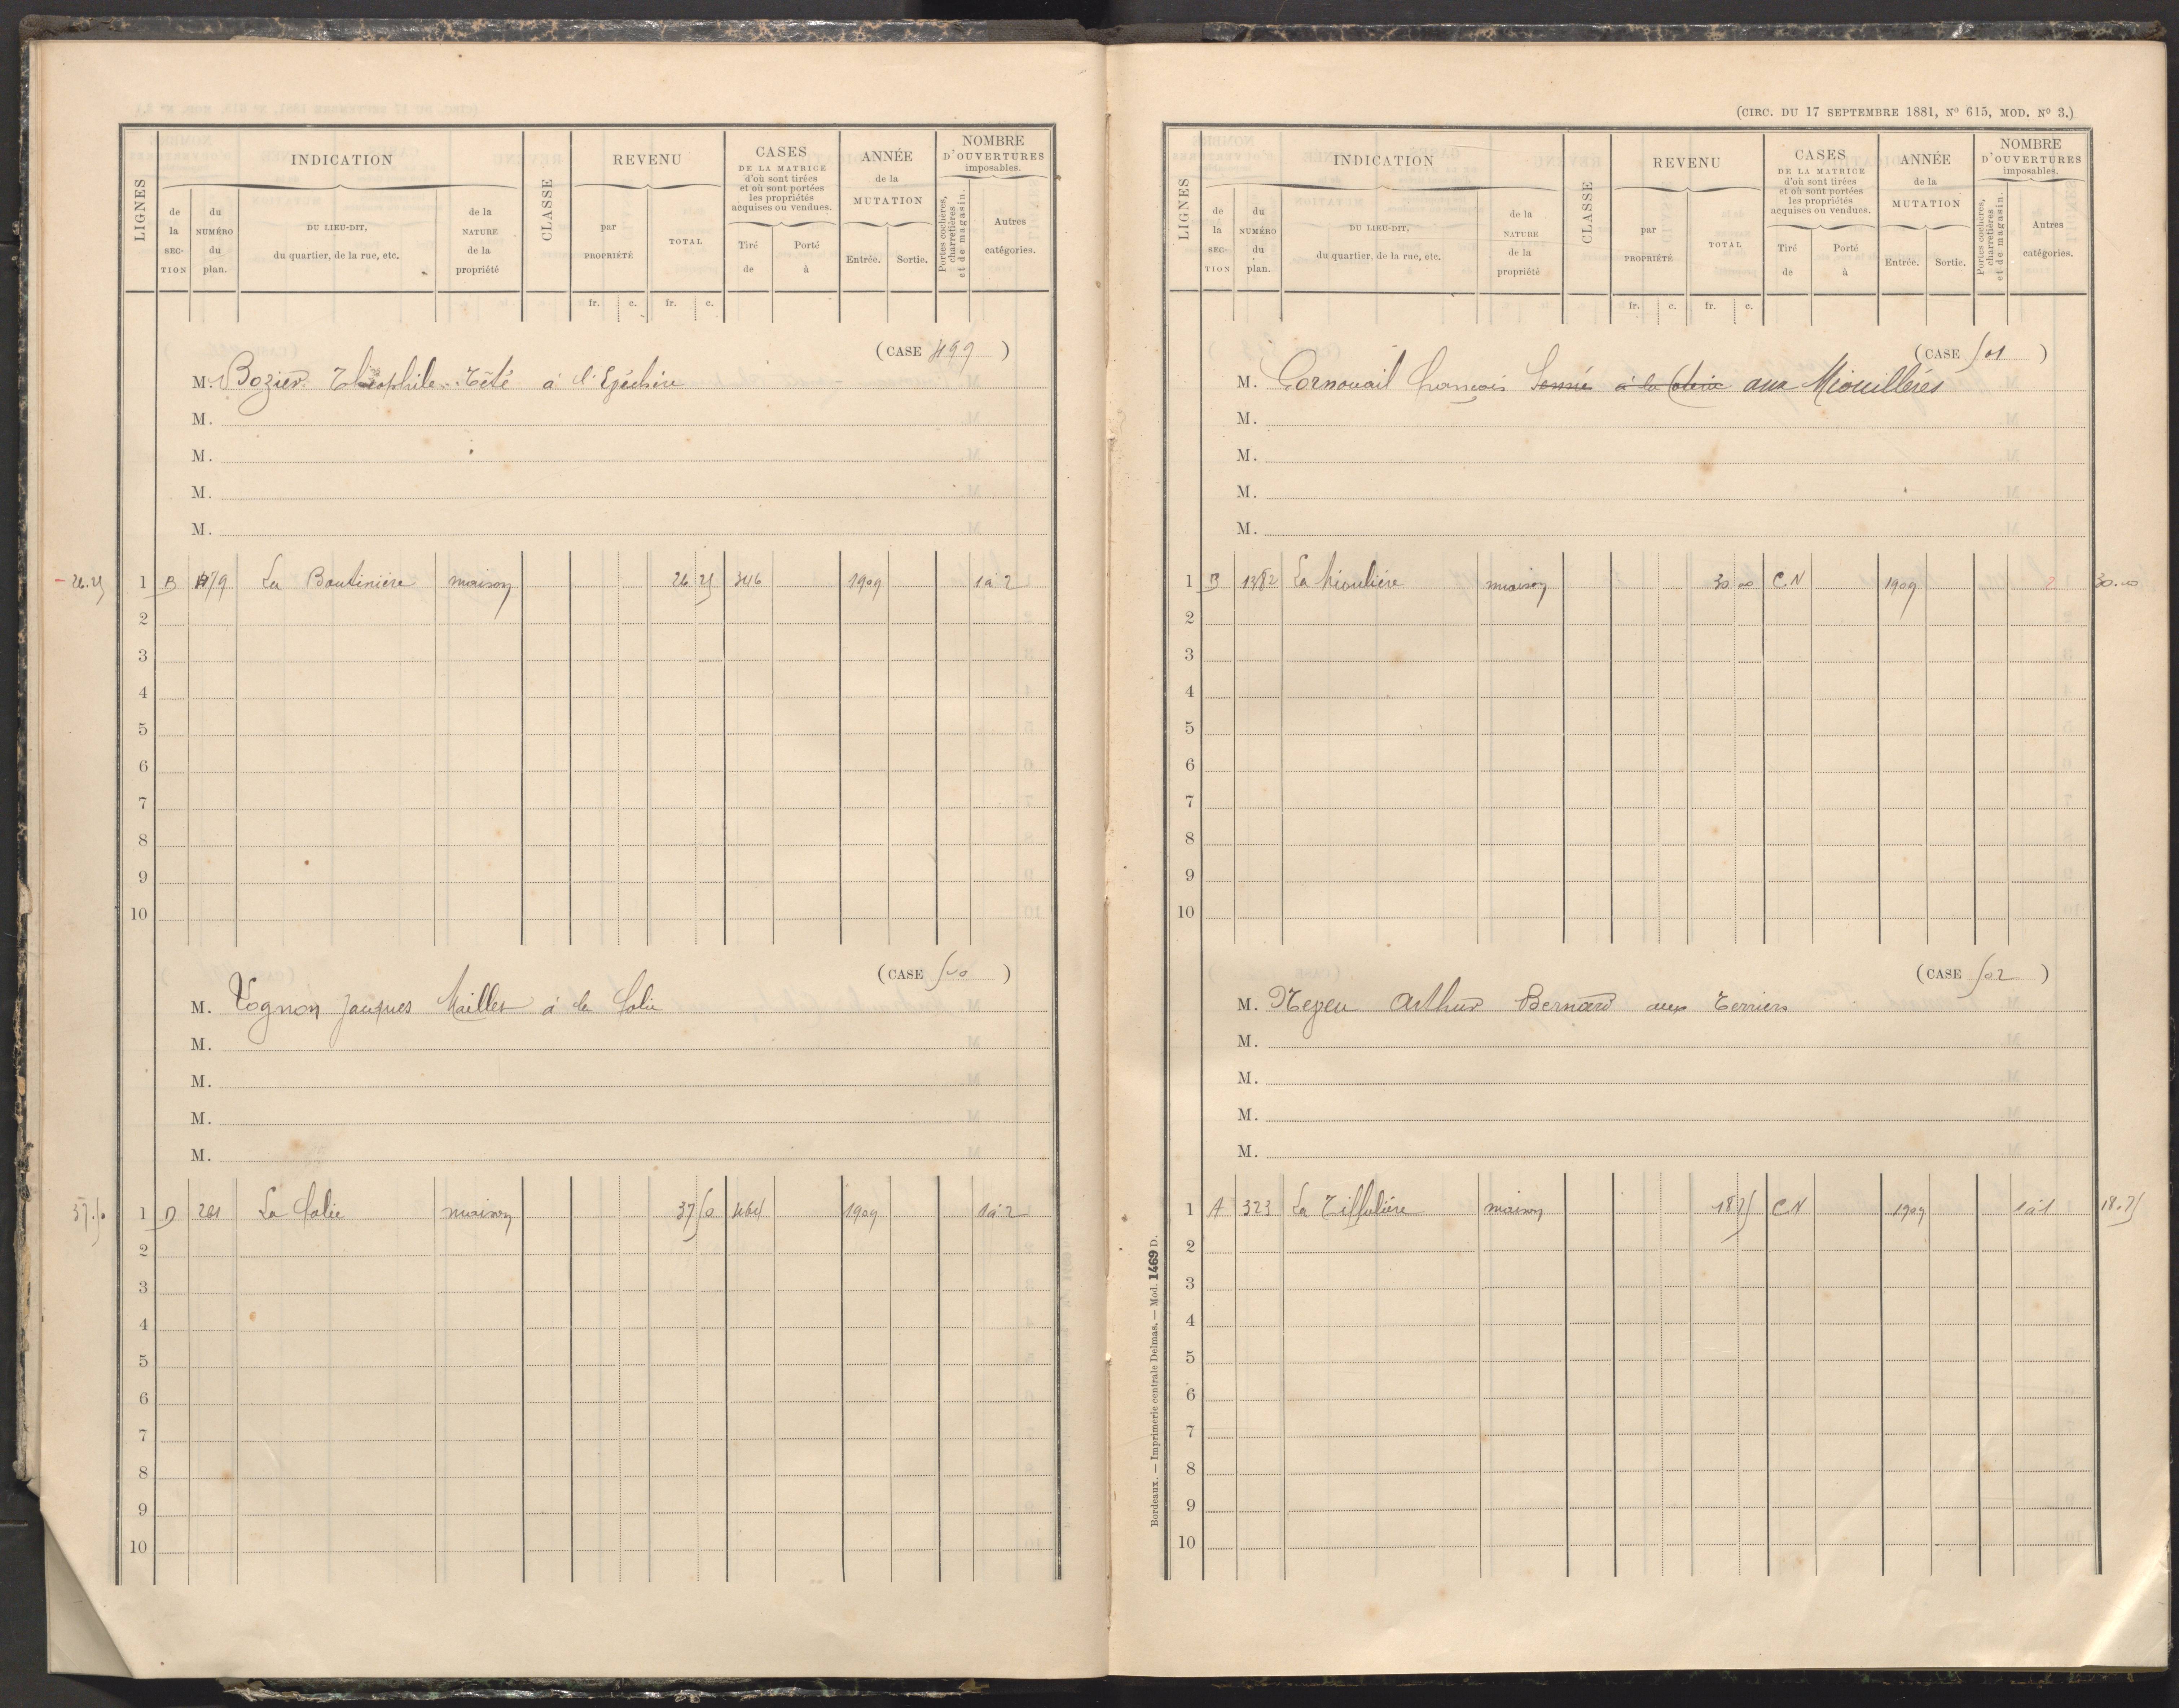 LIGNES
INDICATION
de la SECTION
du NUMÉRO du plan.
DU LIEU-DIT, du quartier, de la rue, etc.
de la NATURE de la propriété
CLASSE
REVENU
par PROPRIÉTÉ
TOTAL
fr. c. fr. c.
CASES
DE LA MATRICE
d'où sont tirées
et où sont portées
les propriétés
acquises ou vendues.
Tiré de
Porté à
ANNÉE
de la
MUTATION
Entrée. Sortie.
NOMBRE
D'OUVERTURES
imposables.
Portes cochères, charretières et de magasin.
Autres catégories.
(CASE 499)
M. Bozier Théophile Tété à
M.
M.
M.
M.
26.25 1 B 479 La Boutinière maison 26 25 346 1909 1à2
2
3
4
5
6
7
8
9
10
(CASE 500)
M. Vognon Jacques à la folie
M.
M.
M.
M.
37.50 1 D 201 La folie maison 37 50 464 1909 1à2
2
3
4
5
6
7
8
9
10
(CIRC. DU 17 SEPTEMBRE 1881, Nº 615, MOD. Nº 3.)
LIGNES
INDICATION
de la SECTION
du NUMÉRO du plan.
DU LIEU-DIT, du quartier, de la rue, etc.
de la NATURE de la propriété
CLASSE
REVENU
par PROPRIÉTÉ
TOTAL
fr. c. fr. c.
CASES
DE LA MATRICE
d'où sont tirées
et où sont portées
les propriétés
acquises ou vendues.
Tiré de
Porté à
ANNÉE
de la
MUTATION
Entrée. Sortie.
NOMBRE
D'OUVERTURES
imposables.
Portes cochères, charretières et de magasin.
Autres catégories.
(CASE 501)
M. Cornouail françois à la aux Miouillères
M.
M.
M.
M.
1 B 1382 La Mioulière maison 30 00 C.N 1909 2 30.00
2
3
4
5
6
7
8
9
10
(CASE 502)
M. Neveu Arthur Bernard aux Terriers
M.
M.
M.
M.
1 A 323 La maison 18 75 C.N 1909 1à1 18.75
2
3
4
5
6
7
8
9
10
Bordeaux. — Imprimerie centrale Delmas. — Mod. 1469 D.